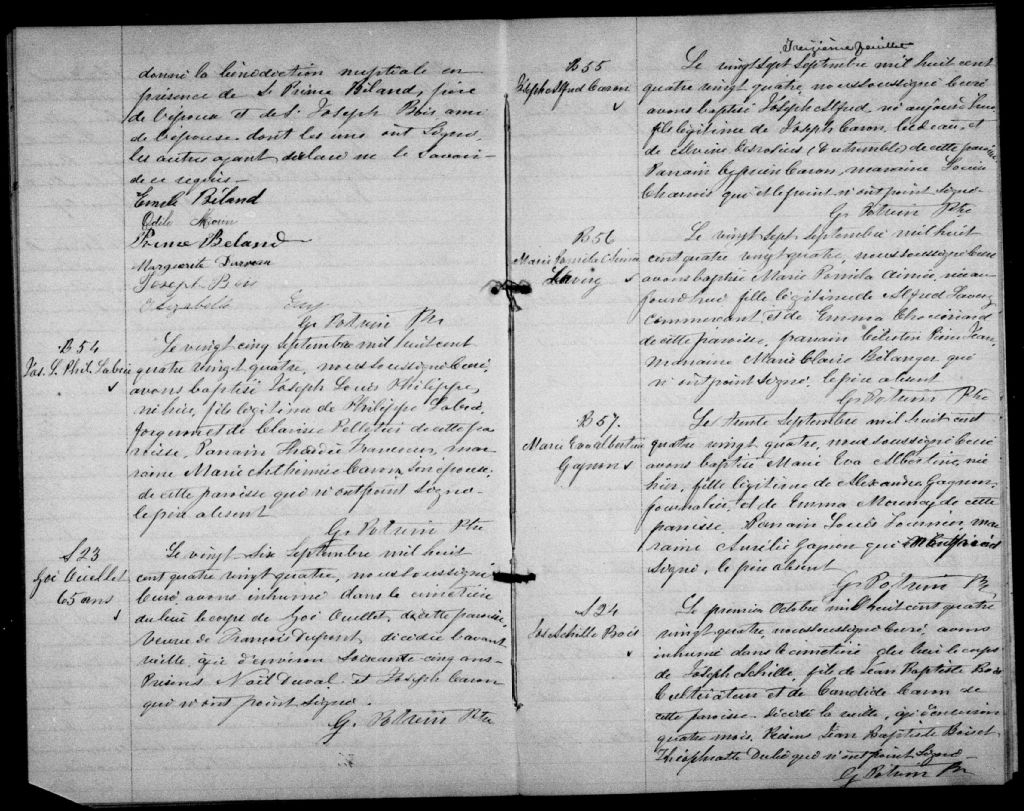 donné la bénédiction nuptiale en
présence de Sr Prime Béland, frère
de l'époux et de Sr Joseph Bois ami
de l'épouse dont les uns ont signé
les autres ayant déclaré ne le savoir
de ce requis-
Béland
Odile
Prime Beland
Marguerite
Joseph Bois
G. Potvin Ptre
B 54
Jas. L. Phil. Labrie
Le vingt cinq septembre mil huit cent
quatre vingt quatre, nous soussigné Curé,
avons baptisé Joseph Louis Philippe,
né hier, fils légitime de Philippe Labrie,
forgeron et de Clarisse Pelletier de cette pa
roisse, Parrain Francoeur, mar
raine Marie Arthémise Caron, son épouse,
de cette paroisse qui n'ont point signé-
le père absent
G. Potvin Ptre
S 23
Goé Ouellet
65 ans
Le vingt six Septembre mil huit
cent quatre vingt quatre, nous soussigné
Curé avons inhumé dans le cimetière
du lieu le corps de Goé Ouellet, de cette paroisse,
Veuve de François Dupont, décédée l'avant
veille, agée d'environ soixante cinq ans-
Présens Noël Duval et Joseph Caron
qui n'ont point signé.
G. Potvin Ptre
Treizième feuillet
B 55
Joseph Alfred Caron
Le vingt sept septembre mil huit cent
quatre vingt quatre, nous soussigné Curé
avons baptisé Joseph Alfred, né aujourd'hui
fils légitime de Joseph Caron, bedeau, et
de Desrosiers (Dutremble) de cette paroisse,
Parrain Cyprien Caron, marraine
qui et le père n'ont point signé-
G. Potvin Ptre
B 56
Marie Aimée
Le vingt sept septembre mil huit
cent quatre vingt quatre, nous soussigné Curé
avons baptisé Marie Aimée, née au
jourd'hui fille légitime de Alfred
commerçant et de Emma
de cette paroisse, parrain Célestin
marraine Marie Claire Bélanger qui
n'ont point signé, le père absent
G. Potvin Ptre
B 57.
Marie Eva Albertine
Gagnon
Le trente Septembre mil huit cent
quatre vingt quatre, nous soussigné Curé
avons baptisé Marie Eva Albertine, née
hier, fille légitime de Alexandre Gagnon,
journalier, et de Emma de cette
paroisse. Parrain Louis Fournier, mar
raine Aurélie Gagnon qui
signé, le père absent
G. Potvin Ptre
S 24
Jos Achille Bois
Le premier Octobre mil huit cent quatre
vingt quatre, nous soussigné Curé avons
inhumé dans le cimetière du lieu le corps
de Joseph Achille, fils de Jean Baptiste Bois
Cultivateur et de Candide Caron de
cette paroisse. Décédé la veille, agé d'environ
quatre mois. Présens Jean Baptiste Bois et
Dubé qui n'ont point signé
G. Potvin Ptre